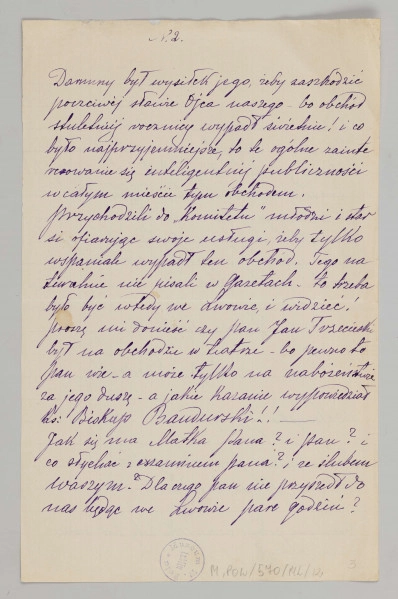 N. 2.
Daremny był wysiłek jego, żeby zaszkodzić
poczciwej sławie Ojca naszego – bo obchód
stuletniej rocznicy wypadł świetnie! i co
było najprzyjemniejsze, to te ogólne zainte
resowanie się inteligentnej publiczności
w całym mieście tym obchodem.
Przychodzili do „Komitetu" młodzi i star
si ofiarując swoje usługi, żeby tylko
wspaniale wypadł ten obchód. Tego na
turalnie nie pisali w Gazetach – to trzeba
było być wtedy we Lwowie, i widzieć!
proszę mi donieść czy pan Jan Trzecieski
był na obchodzie w teatrze – bo pewno to
pan wie – a może tylko na nabożeństwie
za jego duszę – a jakie kazanie wypowiedział
ks: Biskup Bandurski!! –
Jak się ma Matka pana? i pan? i
co słychać z egzaminem pana? i ze ślubem
waszym –? Dlaczego pan nie przyszedł do
nas będąc we Lwowie parę godzin?
M. POW/570/ML/
3